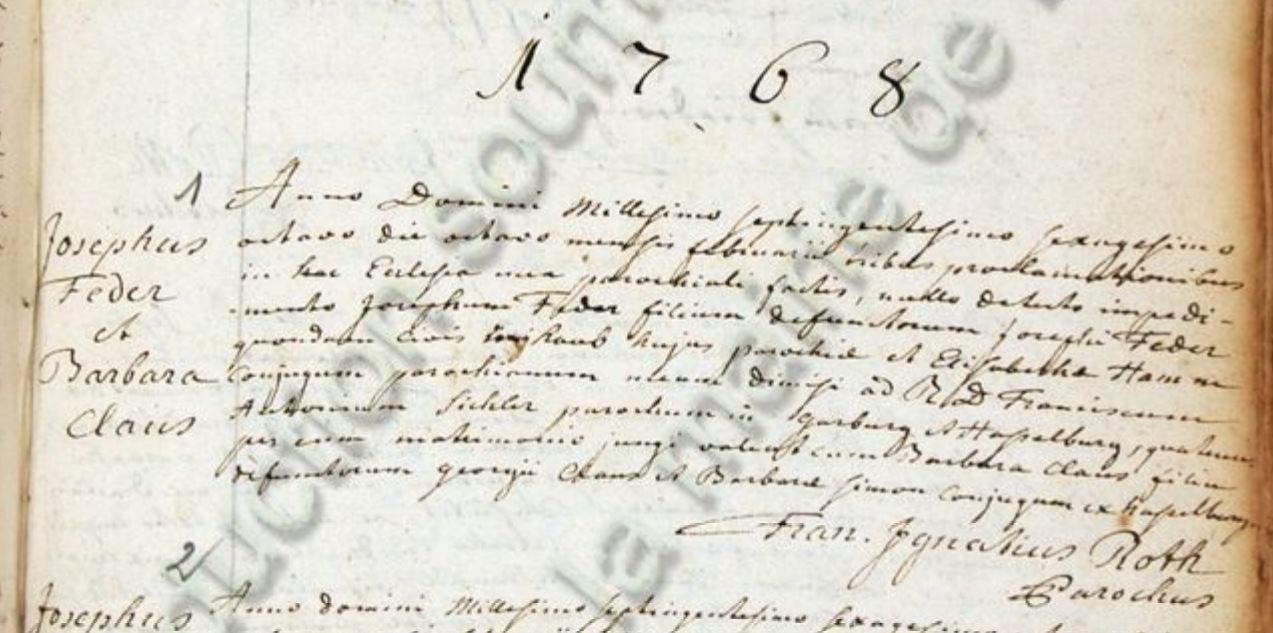 1768
1
Josephus
Feder
et
Barbara
Claus
Anno Domini Millesimo septingentesimo sexagesimo
octavo die octavo mensis februarii tribus proclamationibus
in hac Ecclesia mea parochiali factis, nullo detecto impedi-
mento Josephum Feder filium defunctorum Josephi Feder
quondam Civis hujus parochiæ et Elisabetha Hamm
Conjugum parochianum meum dimisi ad R. D. Franciscum
Antonium Sichler parochum in Garburg et Haselburg, quatenus
per eum matrimonio jungi valeat cum Barbara Claus filia
defunctorum georgii Claus et Barbaræ Simon Conjugum ex haselburg
Fran. Ignatius Roth
Parochus
2
Josephus
Anno domini Millesimo septingentesimo sexagesimo